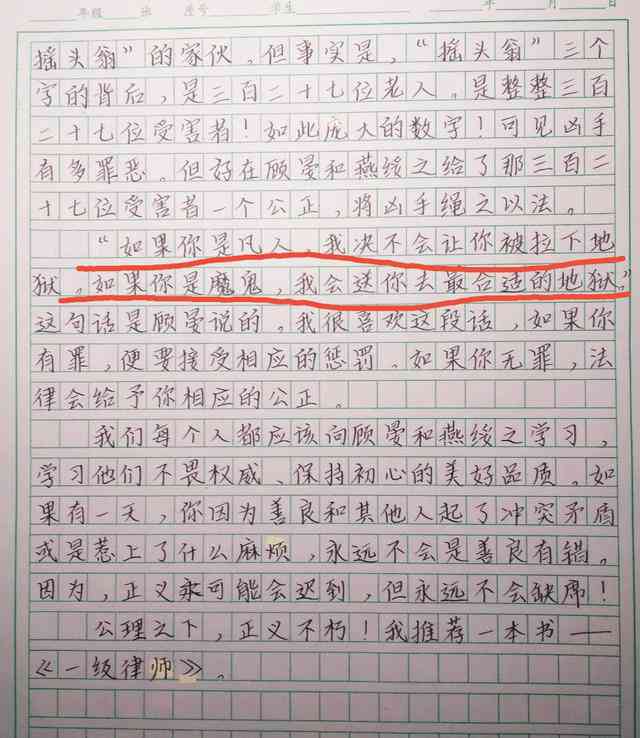 年级 班 座号 学生 年 月 日
摇头翁”的家伙。但事实是，“摇头翁”三个
字的背后，是三百二十七位老人。是整整三百
二十七位受害者！如此庞大的数字！可见凶手
有多罪恶。但好在顾晏和燕绥之给了那三百二
十七位受害者一个公正，将凶手绳之以法。
“如果你是凡人，我决不会让你被拉下地
狱。如果你是魔鬼，我会送你去最合适的地狱。”
这句话是顾晏说的。我很喜欢这段话，如果你
有罪，便要接受相应的惩罚。如果你无罪，法
律会给予你相应的公正。
我们每个人都应该向顾晏和燕绥之学习，
学习他们不畏权威、保持初心的美好品质。如
果有一天，你因为善良和其他人起了冲突矛盾
或是惹上了什么麻烦，永远不会是善良有错。
因为，正义永可能会迟到，但永远不会缺席！
公理之下，正义不朽！我推荐一本书——
《一级律师》。